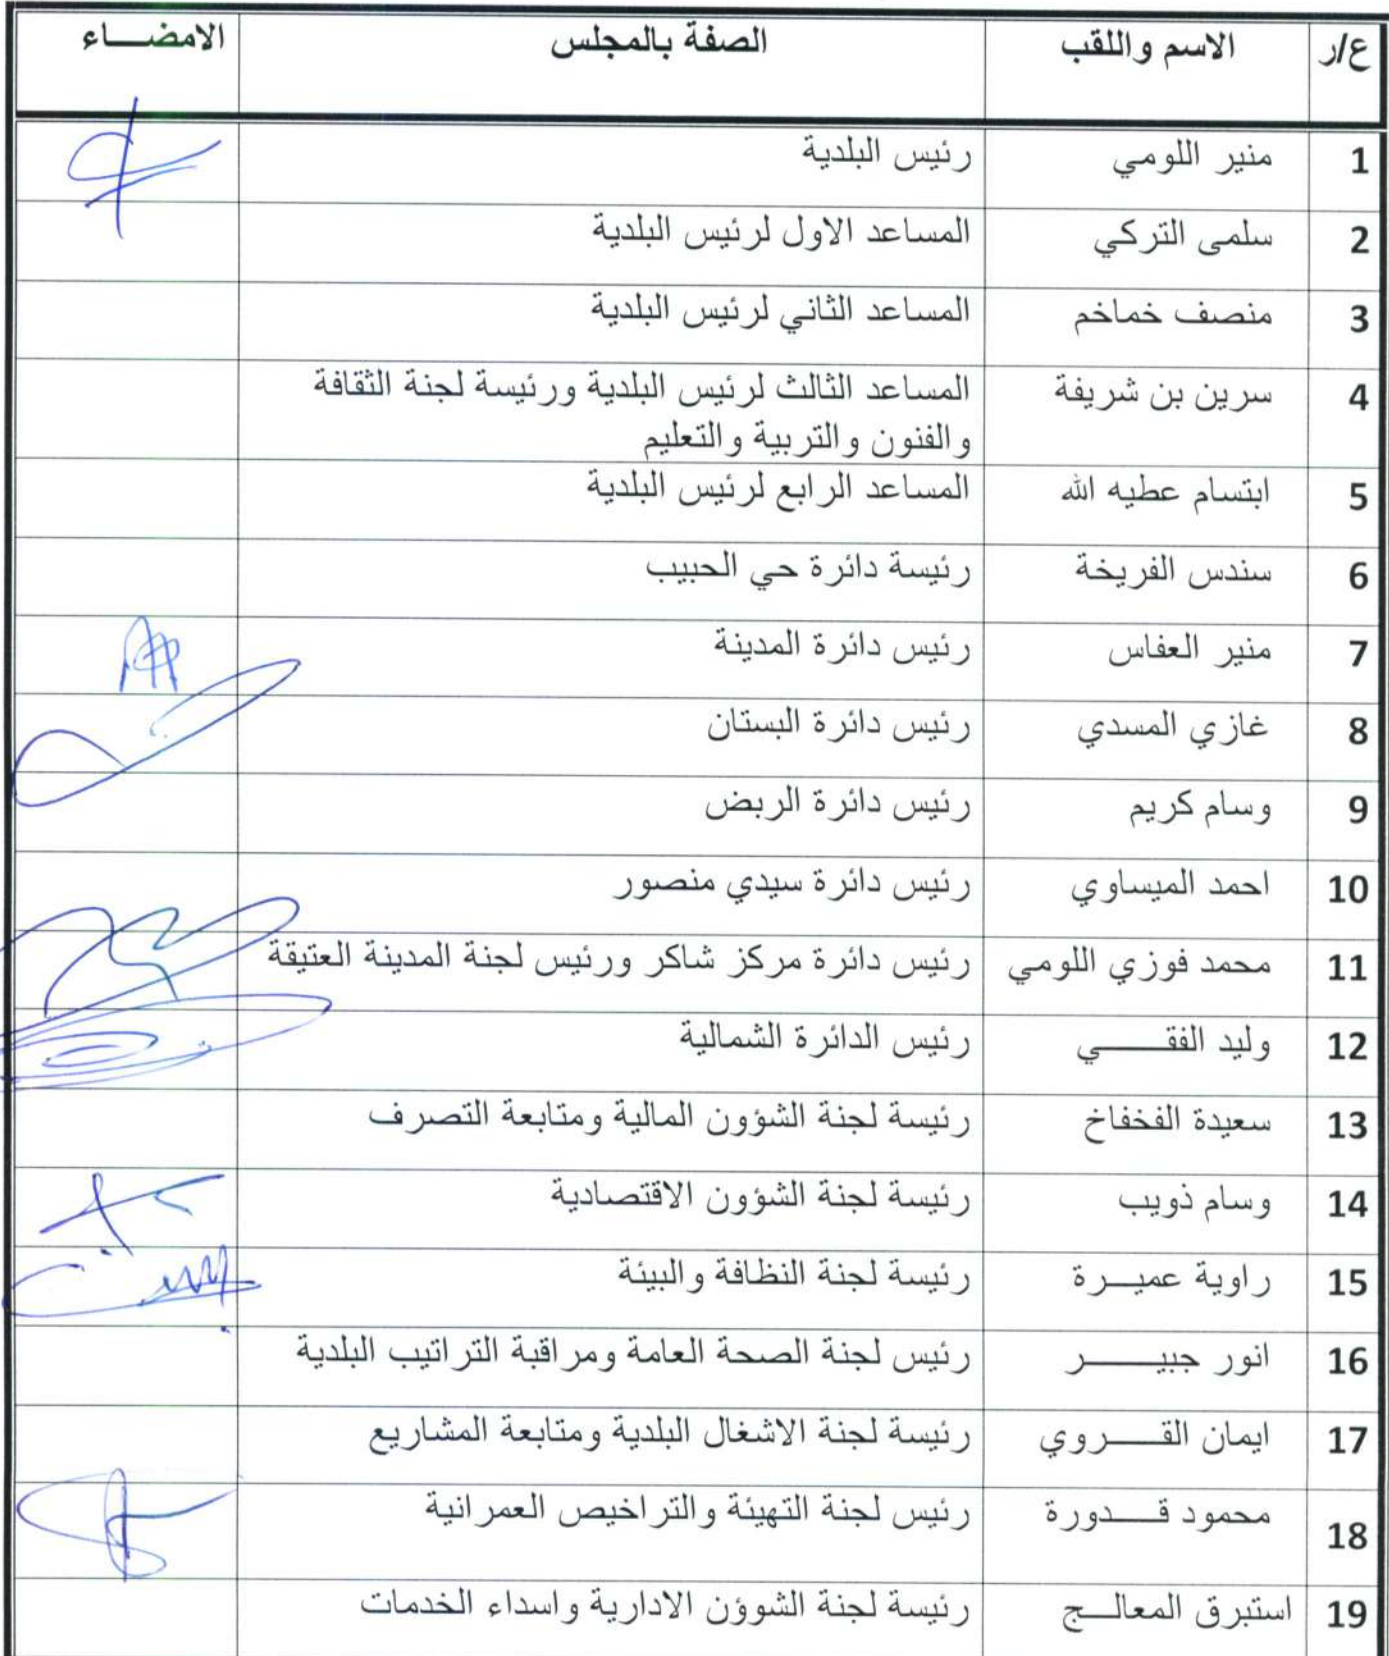 ع/ر الاسم واللقب الصفة بالمجلس الامضـــاء
1 منير اللومي رئيس البلدية
2 سلمى التركي المساعد الاول لرئيس البلدية
3 منصف خماخم المساعد الثاني لرئيس البلدية
4 سرين بن شريفة المساعد الثالث لرئيس البلدية ورئيسة لجنة الثقافة
والفنون والتربية والتعليم
5 ابتسام عطيه الله المساعد الرابع لرئيس البلدية
6 سندس الفريخة رئيسة دائرة حي الحبيب
7 منير العفاس رئيس دائرة المدينة
8 غازي المسدي رئيس دائرة البستان
9 وسام كريم رئيس دائرة الربض
10 احمد الميساوي رئيس دائرة سيدي منصور
11 محمد فوزي اللومي رئيس دائرة مركز شاكر ورئيس لجنة المدينة العتيقة
12 وليد الفقـــــي رئيس الدائرة الشمالية
13 سعيدة الفخفاخ رئيسة لجنة الشؤون المالية ومتابعة التصرف
14 وسام ذويب رئيسة لجنة الشؤون الاقتصادية
15 راوية عميـــرة رئيسة لجنة النظافة والبيئة
16 انور جبيـــــر رئيس لجنة الصحة العامة ومراقبة التراتيب البلدية
17 ايمان القـــــروي رئيسة لجنة الاشغال البلدية ومتابعة المشاريع
18 محمود قـــــدورة رئيس لجنة التهيئة والتراخيص العمرانية
19 استبرق المعالـــج رئيسة لجنة الشوؤن الادارية واسداء الخدمات